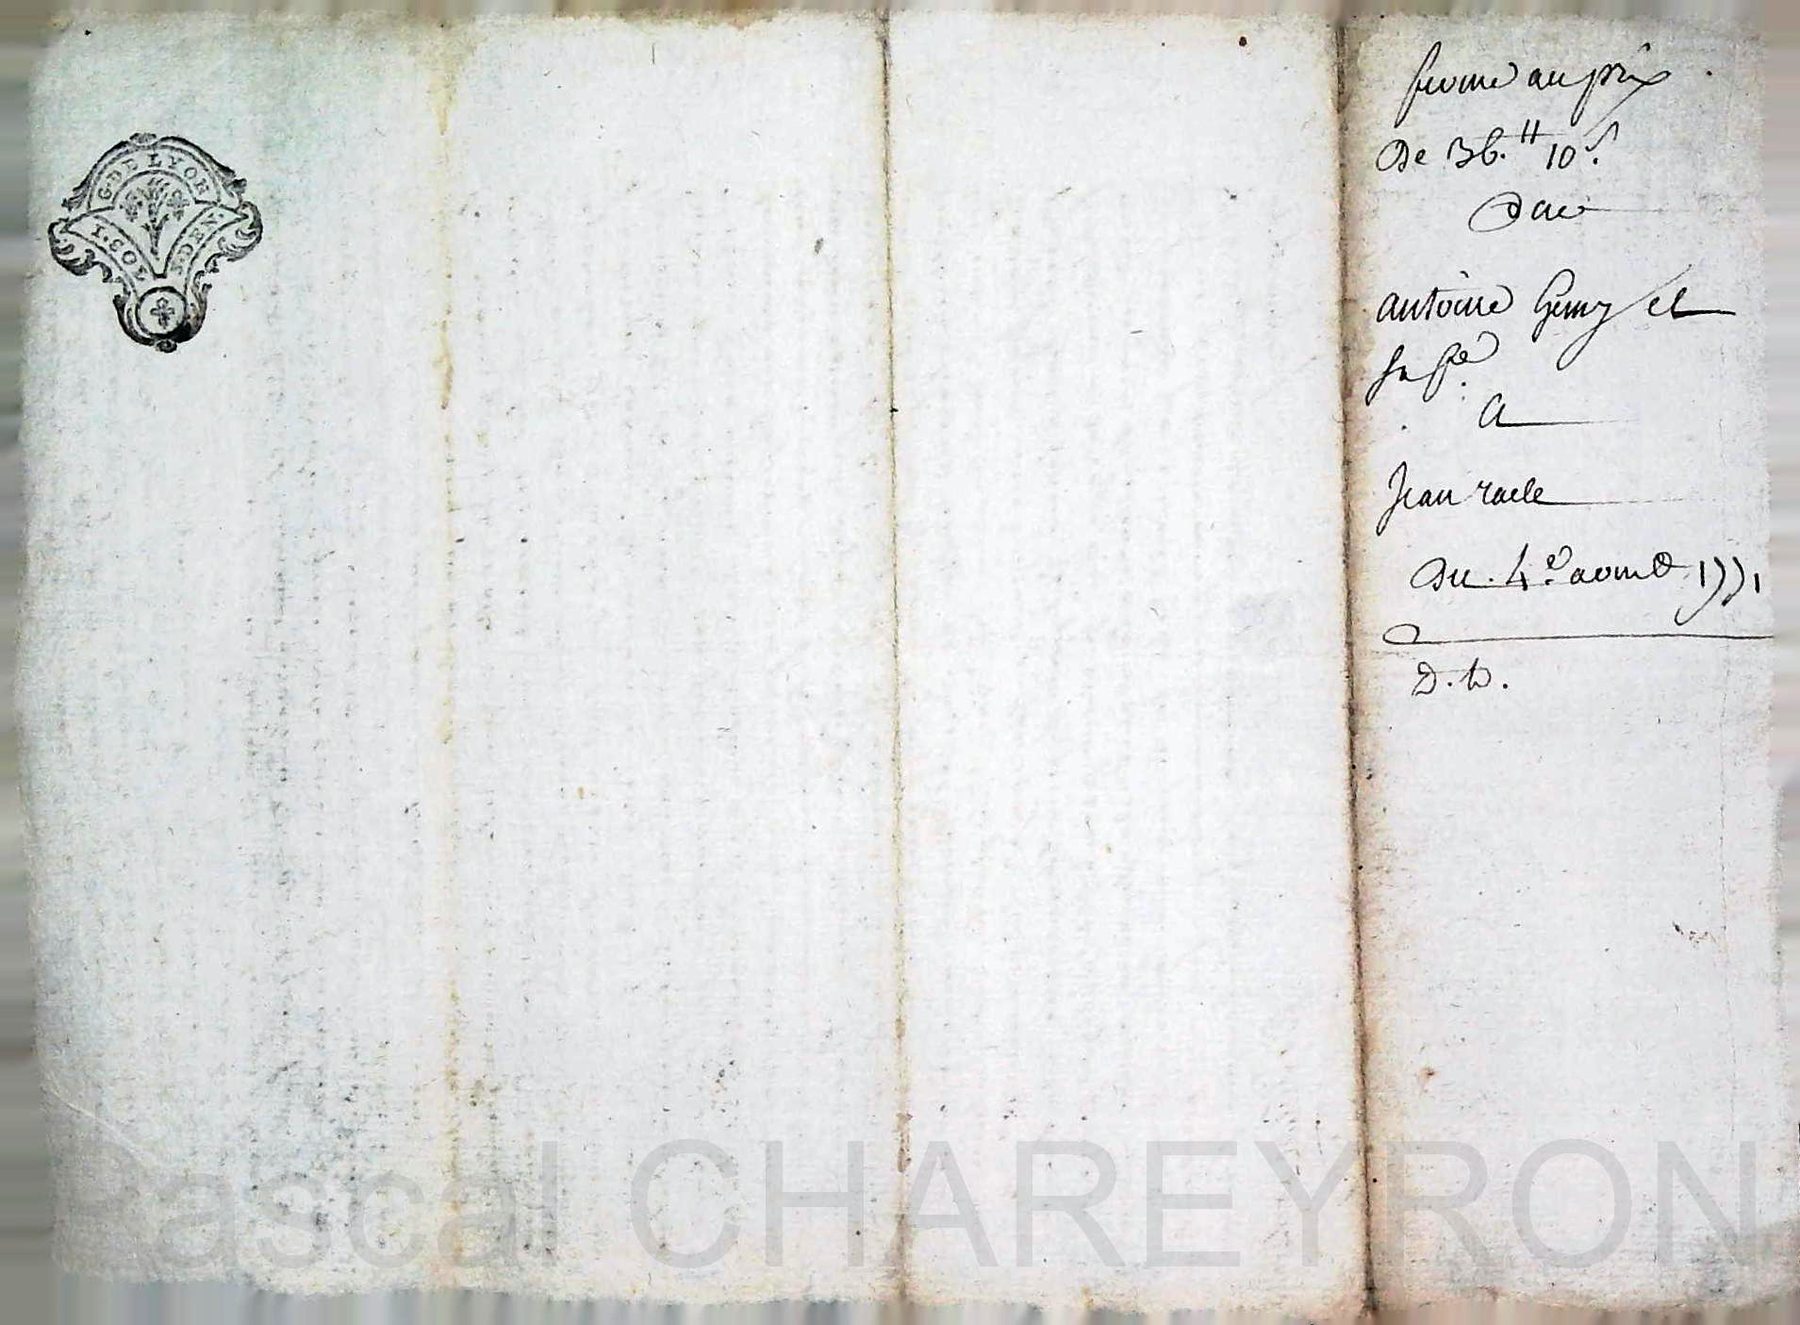 G. DE LYON
1. SOL
6. DEN.
ferme au prix
De 36.ᴴ 10ˢ.
antoine Gemy et
sa fe.
a
Jean racle
Du. 4e. aoust 1771
D. D.
Pascal CHAREYRON